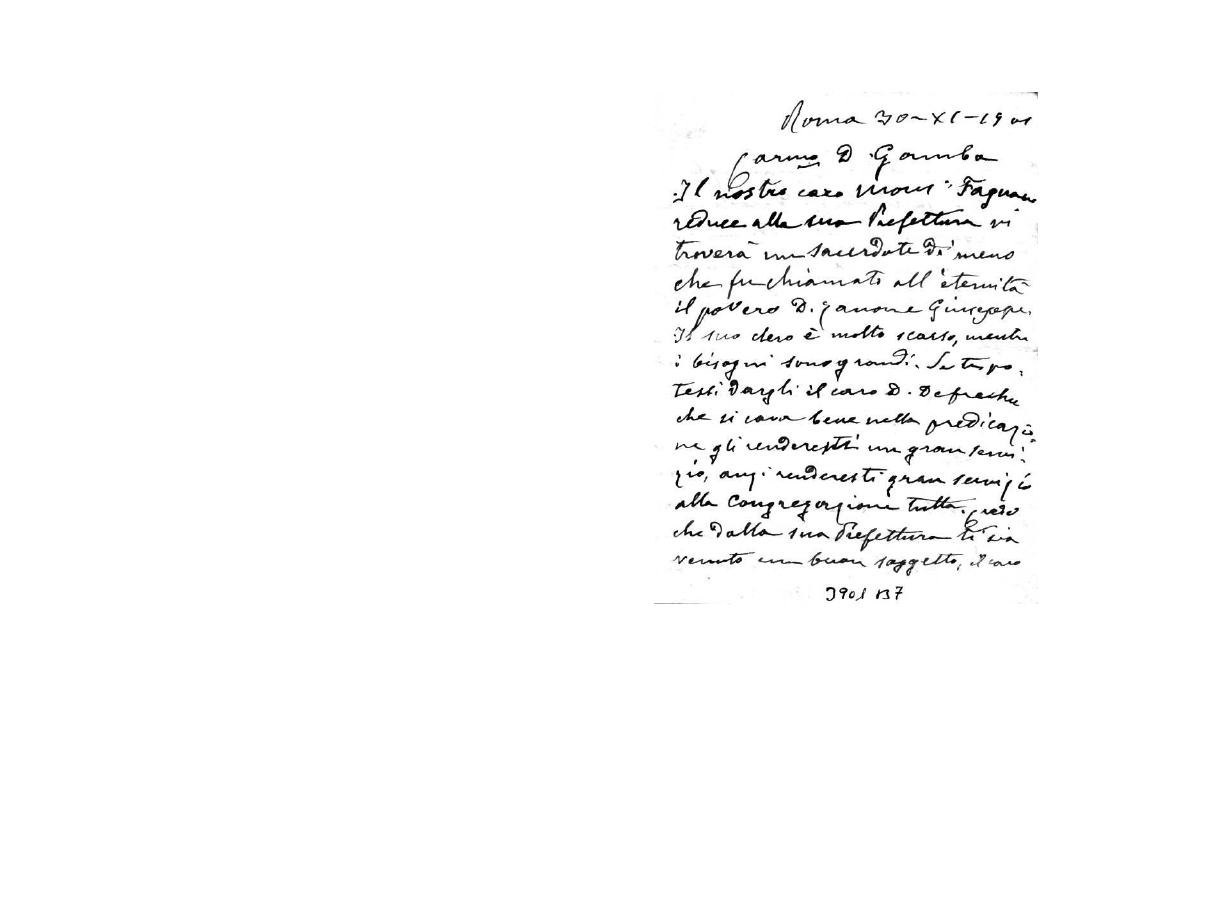 Roma 30-XI-1901
Carmo D. Gamba
Il nostro caro Mons. Fagnano
reduce alla sua Prefettura vi
troverà un sacerdote di meno
che fu chiamato all'eternità
il povero D. Zanone Giuseppe.
Il suo clero è molto scarso, mentre
i bisogni sono grandi. Se tu po-
tessi dargli il caro D.
che si cava bene nella predicazio-
ne gli renderesti un gran servi-
zio, anzi renderesti gran servizio
alla Congregazione tutta. Credo
che dalla sua Prefettura ti sia
venuto un buon soggetto, il caro
1901 B7